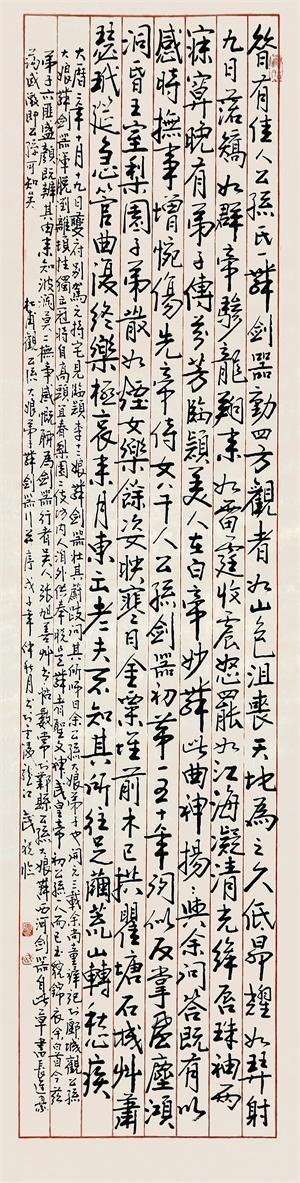 昔有佳人公孫氏一舞劍器動四方觀者如山色沮喪天地為之久低昂㸌如羿射
九日落矯如群帝驂龍翔來如雷霆收震怒罷如江海凝清光絳唇珠袖兩
寂寞晚有弟子傳芬芳臨潁美人在白帝妙舞此曲神揚揚與余問答既有以
感時撫事增惋傷先帝侍女八千人公孫劍器初第一五十年間似反掌風塵澒
洞昏王室梨園子弟散如煙女樂餘姿映寒日金粟堆前木已拱瞿塘石城艸蕭
瑟玳筵急管曲復終樂極哀來月東出老夫不知其所往足繭荒山轉愁疾
大曆二年十月十九日夔府別駕元持宅見臨潁李十二娘舞劍器壯其蔚跂問其所師曰余公孫大娘弟子也開元三載余尚童稚記於郾城觀公孫
大娘舞劍器渾脫瀏灕頓挫獨立冠時自高頭宜春梨園二伎坊內人洎外供奉曉是舞者聖文神武皇帝初公孫一人而已玉貌錦衣余白首今茲
弟子亦匪盛顏既辨其由來知波瀾莫二撫事感慨聊為劍器行昔者吳人張旭善草書帖數常於鄴縣見公孫大娘舞西河劍器自此草書長進豪
蕩感激即公孫可知矣
杜甫觀公孫大娘弟子舞劍器行並序戊子年仲秋月